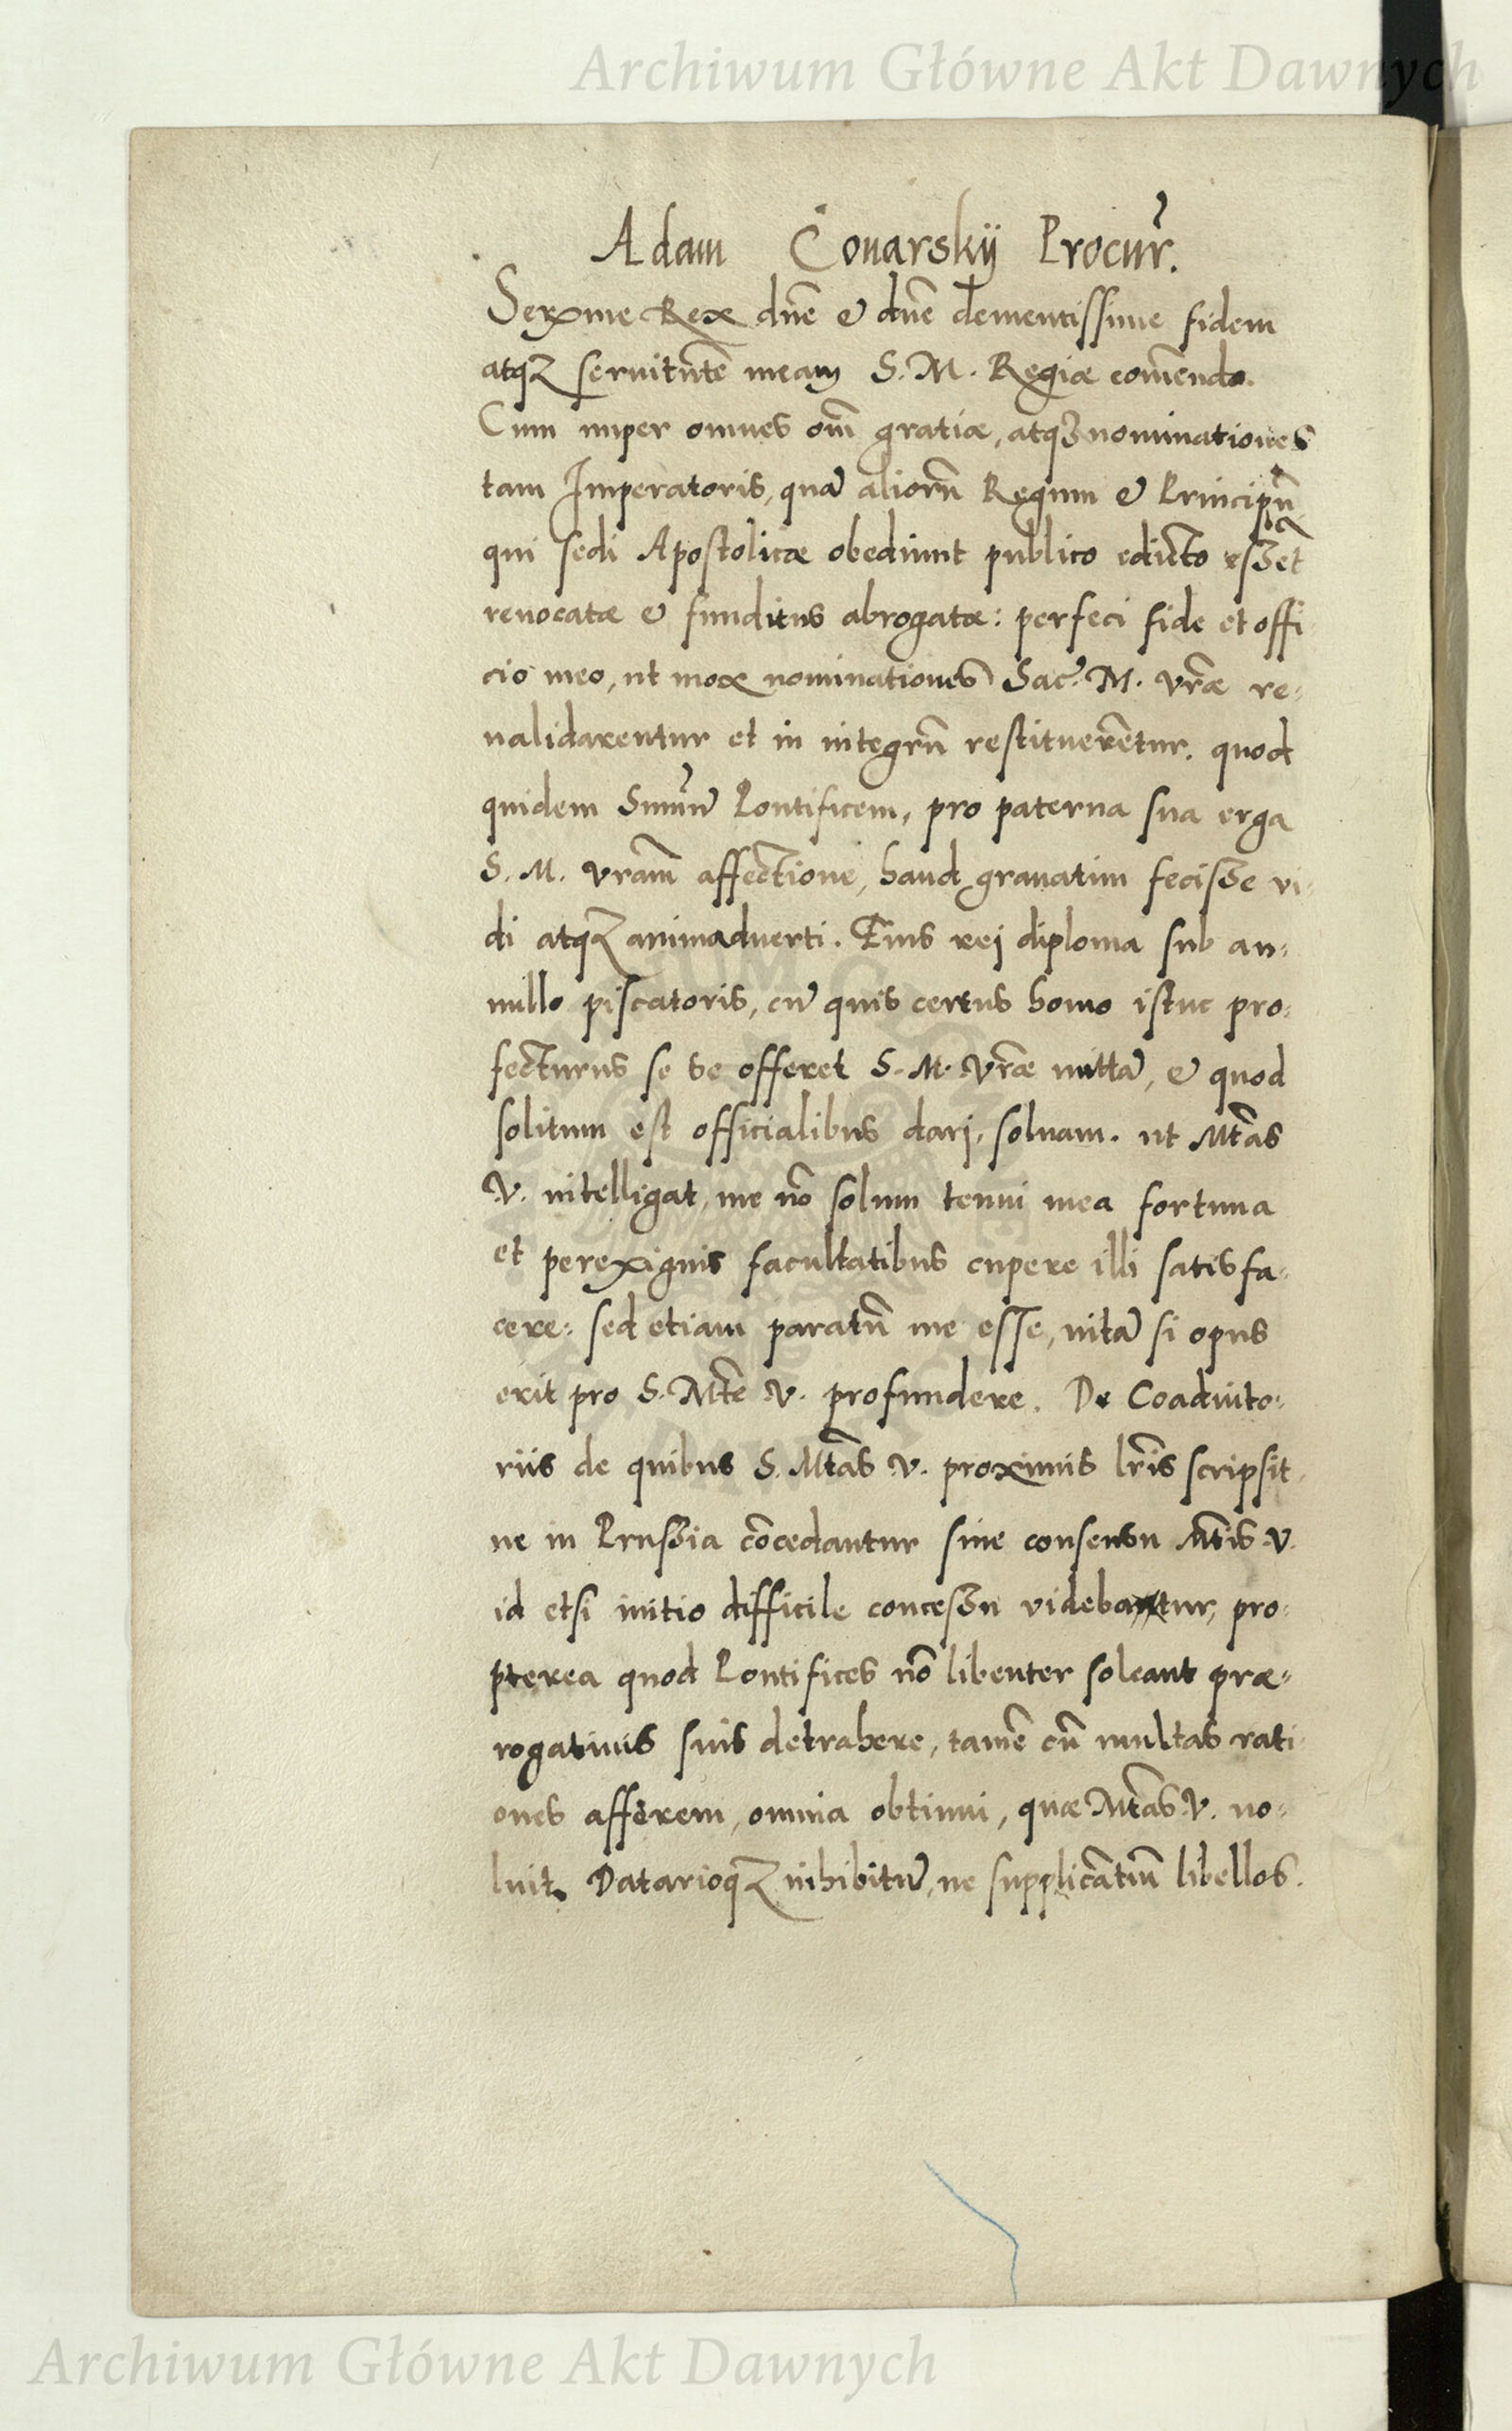 Archiwum Główne Akt Dawnych
Adam Conarskÿ Procur.
Serme Rex dne et dne clementissime fidem
atqz seruitute meam S. M. Regiæ comendo.
Cum nuper omnes om gratiæ, atqz nominationes
tam Imperatoris, qua aliorū Regum et Principū
qui sedi Apostolicæ obediunt publico edicto essēt
reuocatæ et funditus abrogatæ: perfeci fide et offi
cio meo, ut mox nominationes Sac. M. vræ re-
ualidarentur et in integrū restituerētur. quod
quidem Smū Pontificem, pro paterna sua erga
S. M. vram affectione, haud grauatim fecisse vi-
di atqz animaduerti. Eius rei diploma sub an-
nullo piscatoris, cū quis certus homo istuc pro-
fecturus se se offeret S. M. vræ mittā, et quod
solitum est officialibus dari, soluam. ut Mtas
V. intelligat, me nō solum tenui mea fortuna
et perexiguis facultatibus cupere illi satisfa-
cere: sed etiam paratū me esse, uitā si opus
erit pro S. Mte V. profundere. De Coadiuto-
riis de quibus S. Mtas V. proximis lris scripsit,
ne in Prussia cōcedantur sine consensu Mtis V.
id etsi initio difficile concessu videbatur, pro-
pterea quod Pontifices nō libenter soleant præ-
rogatiuis suis detrahere, tamē cū multas rati
ones afferem, omnia obtinui, quæ Mtas V. uo-
luit. Datarioqz inhibitū, ne supplicātiū libellos.
Archiwum Główne Akt Dawnych